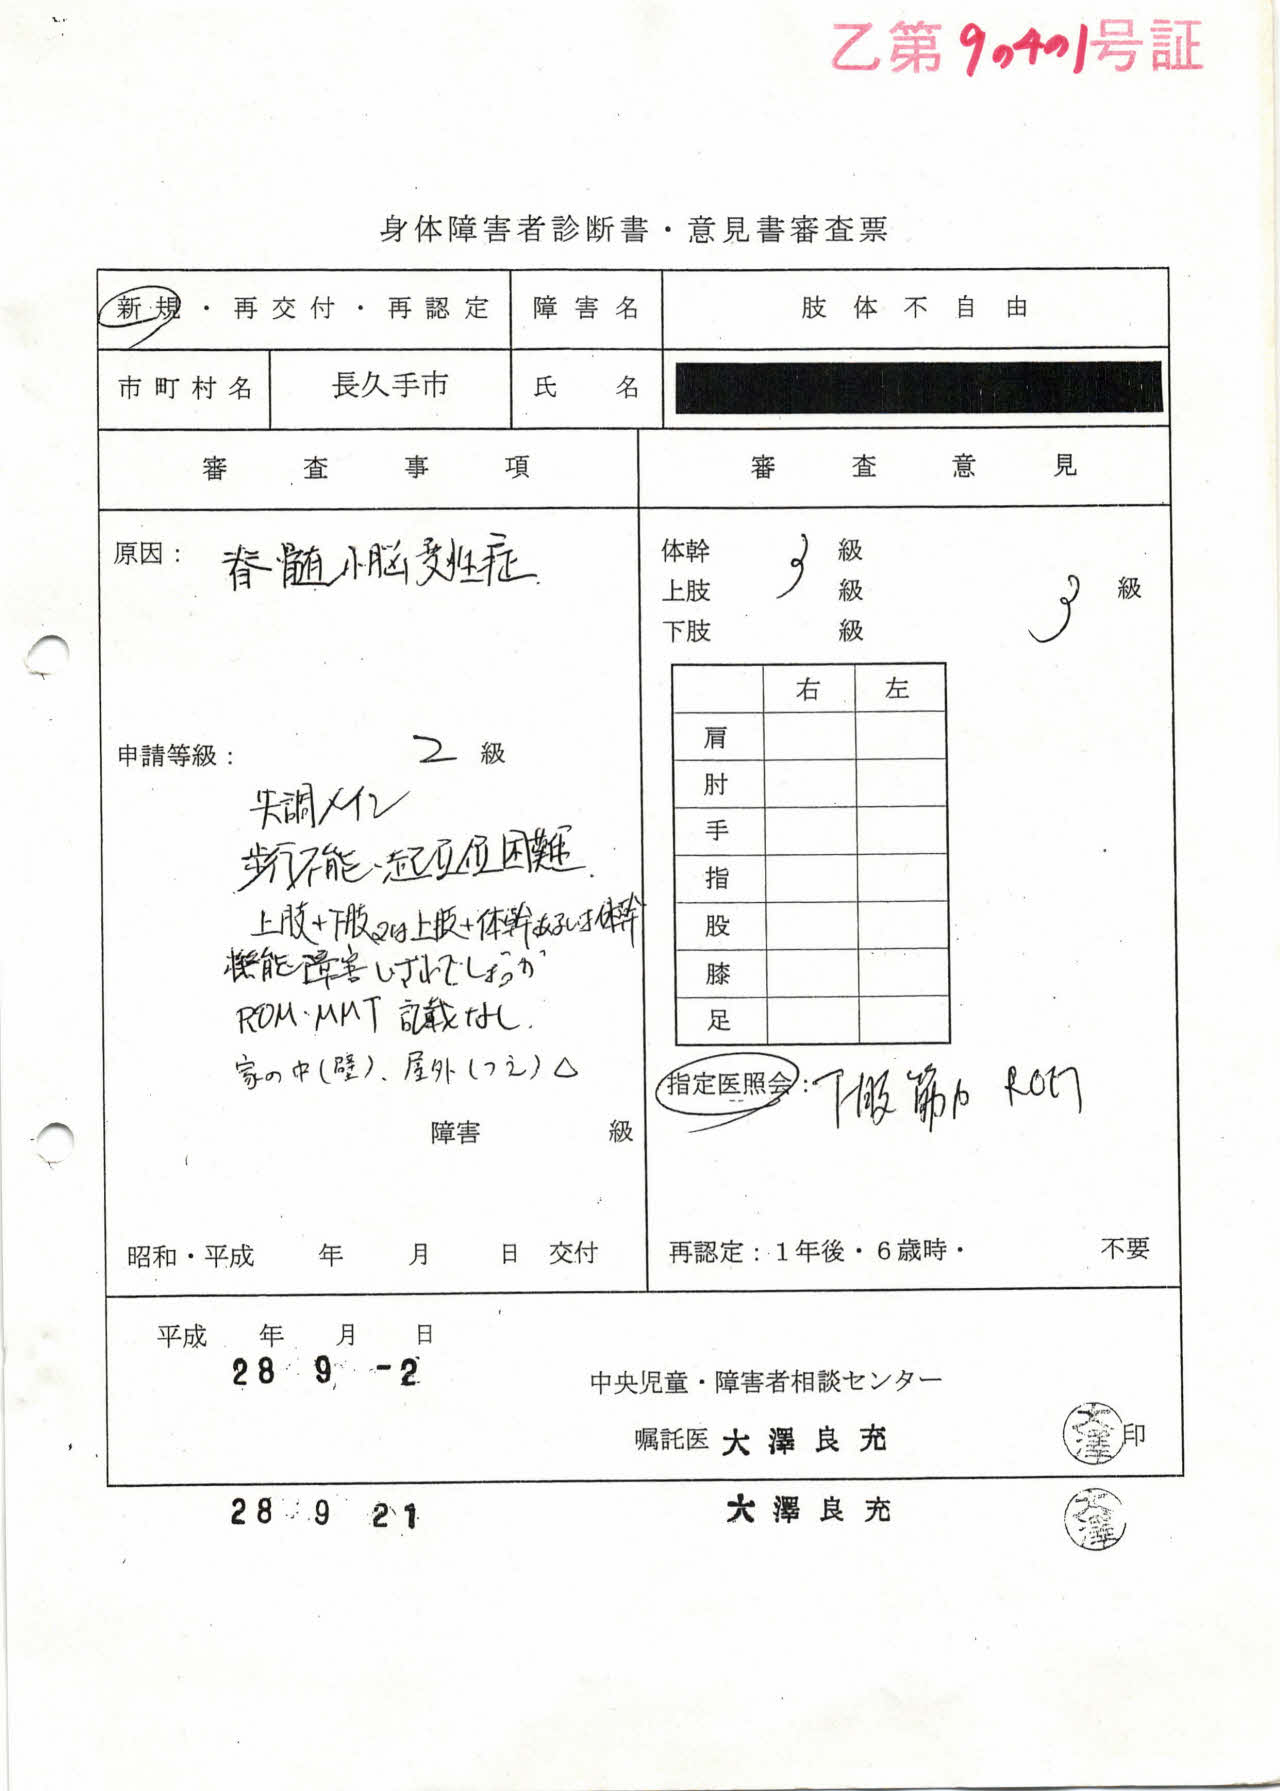 乙第9の4の1号証
身体障害者診断書・意見書審査票
新規・再交付・再認定 障害名 肢体不自由
市町村名 長久手市 氏名
審査事項 審査意見
原因： 脊髄小脳変性症
申請等級： 2 級
失調メイン
歩行不能・起立位困難
上肢+下肢又は上肢+体幹あるいは体幹
機能障害いずれでしょうか
ROM・MMT 記載なし
家の中(壁)、屋外(つえ)△
障害 級
昭和・平成 年 月 日 交付
体幹 3 級
上肢 級
下肢 級
3 級
右 左
肩
肘
手
指
股
膝
足
指定医照会： 下肢筋力 ROM
再認定：１年後・６歳時・ 不要
平成 年 月 日
28 9 -2
中央児童・障害者相談センター
嘱託医 大澤良充 大澤 印
28 9 21 大澤良充 大澤